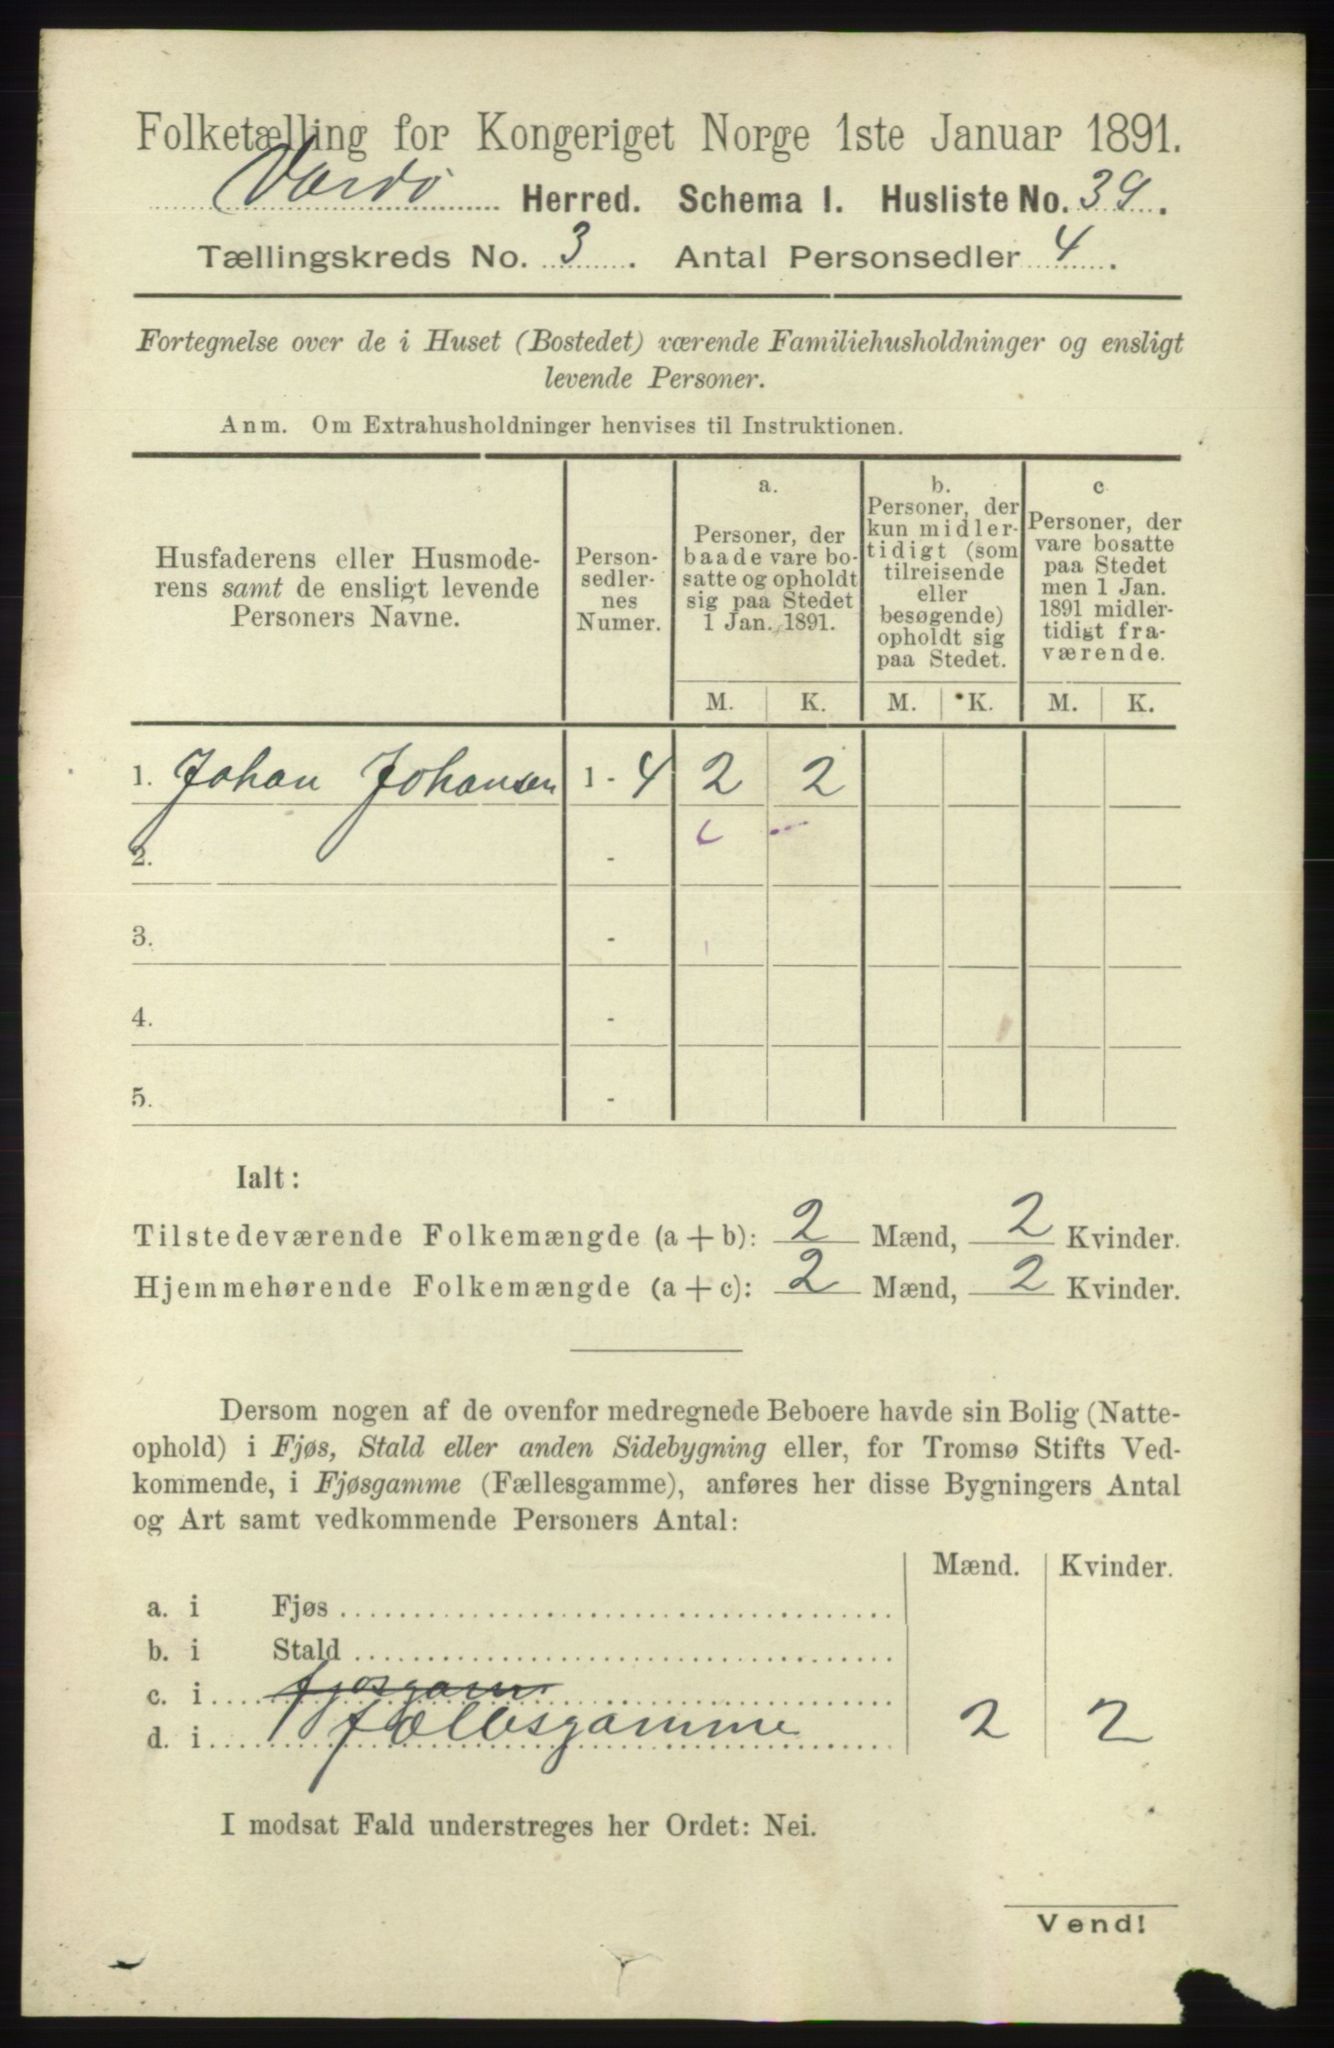 Folketælling for Kongeriget Norge 1ste Januar 1891.
Vardø Herred. Schema I. Husliste No. 39.
Tællingskreds No. 3. Antal Personsedler 4.
Fortegnelse over de i Huset (Bostedet) værende Familiehusholdninger og ensligt
levende Personer.
Anm. Om Extrahusholdninger henvises til Instruktionen.
Husfaderens eller Husmode-
rens samt de ensligt levende
Personers Navne.
Person-
sedler-
nes
Numer.
a.
Personer, der
baade vare bo-
satte og opholdt
sig paa Stedet
1 Jan. 1891.
b.
Personer, der
kun midler-
tidigt (som
tilreisende
eller
besøgende)
opholdt sig
paa Stedet.
c
Personer, der
vare bosatte
paa Stedet
men 1 Jan.
1891 midler-
tidigt fra-
værende.
M. K. M. K. M. K.
1. Johan Johansen 1 - 4 2 2
2. -
3. -
4. -
5. -
Ialt:
Tilstedeværende Folkemængde (a + b): 2 Mænd, 2 Kvinder.
Hjemmehørende Folkemængde (a + c): 2 Mænd, 2 Kvinder.
Dersom nogen af de ovenfor medregnede Beboere havde sin Bolig (Natte-
ophold) i Fjøs, Stald eller anden Sidebygning eller, for Tromsø Stifts Ved-
kommende, i Fjøsgamme (Fællesgamme), anføres her disse Bygningers Antal
og Art samt vedkommende Personers Antal:
Mænd. Kvinder.
a. i Fjøs
b. i Stald
c. i fjosgam
d. i 1 fællesgamme 2 2
I modsat Fald understreges her Ordet: Nei.
Vend!